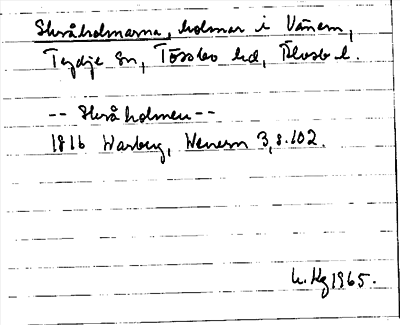 Skråholmarna, holmar i Vänern,
Tydje sn, Tössbo hd, Älvsb l.
-- Skråholmen --
1816 Warberg, Wenern 3, s. 102.
1965.